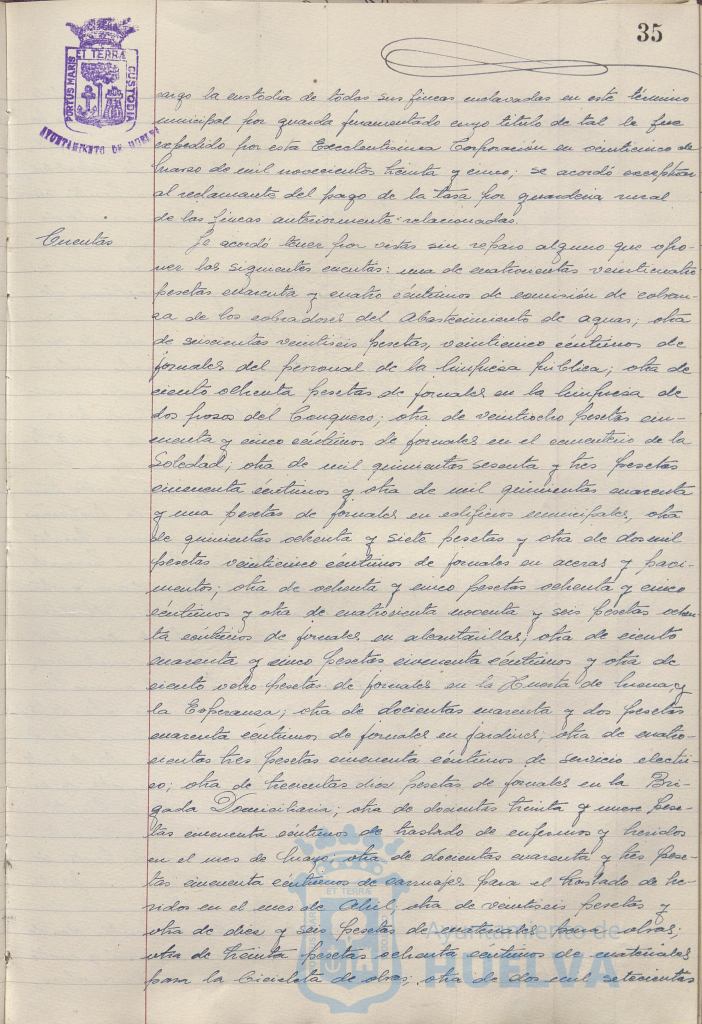 35
PORTUS MARIS ET TERRÆ CUSTODIA
AYUNTAMIENTO DE HUELVA
cargo la custodia de todas sus fincas enclavadas en este término
municipal por guarda juramentado cuyo titulo de tal le fue
expedido por esta Excelentisima Corporación en veinticinco de
Marzo de mil novecientos treinta y cinco; se acordó exceptuar
al reclamante del pago de la tasa por guarderia rural
de las fincas anteriormente relacionadas
Cuentas
Se acordó tener por vistas sin reparo alguno que opo-
ner las siguientes cuentas: una de cuatrocientas veinticuatro
pesetas cuarenta y cuatro céntimos de comisión de cobran-
za de los cobradores del Abastecimiento de aguas; otra
de seiscientas veintiseis pesetas, veinticinco céntimos de
jornales del personal de la limpieza pública; otra de
ciento ochenta pesetas de jornales en la limpieza de
dos pozos del Conquero; otra de veintiocho pesetas cin-
cuenta y cinco céntimos de jornales en el cementerio de la
Soledad; otra de mil quinientas sesenta y tres pesetas
cincuenta céntimos y otra de mil quinientas cuarenta
y una pesetas de jornales en edificios municipales, otra
de quinientas ochenta y siete pesetas y otra de dos mil
pesetas veinticinco céntimos de jornales en aceras y paci-
mentos; otra de ochenta y cinco pesetas ochenta y cinco
céntimos y otra de cuatrocienta noventa y seis pesetas ochen
ta céntimos de jornales en alcantarillas; otra de ciento
cuarenta y cinco pesetas cincuenta céntimos y otra de
ciento ocho pesetas de jornales en la Huerta de Mena y
la Esperanza; otra de docientas cuarenta y dos pesetas
cuarenta céntimos de jornales en jardines; otra de cuatro-
cientas tres pesetas cincuenta céntimos de servicio electri-
co; otra de trecientas diez pesetas de jornales en la Bri-
gada Domiciliaria; otra de docientas treinta y nueve pese-
tas cincuenta céntimos de traslado de enfermos y heridos
en el mes de Mayo; otra de docientas cuarenta y tres pese-
tas cincuenta céntimos de carruajes para el traslado de he-
ridos en el mes de Abril, otra de veintiseis pesetas y
otra de diez y seis pesetas de materiales para obras;
otra de treinta pesetas ochenta céntimos de materiales
para la bicicleta de obras, otra de dos mil setecientas
Ayuntamiento de
HUELVA